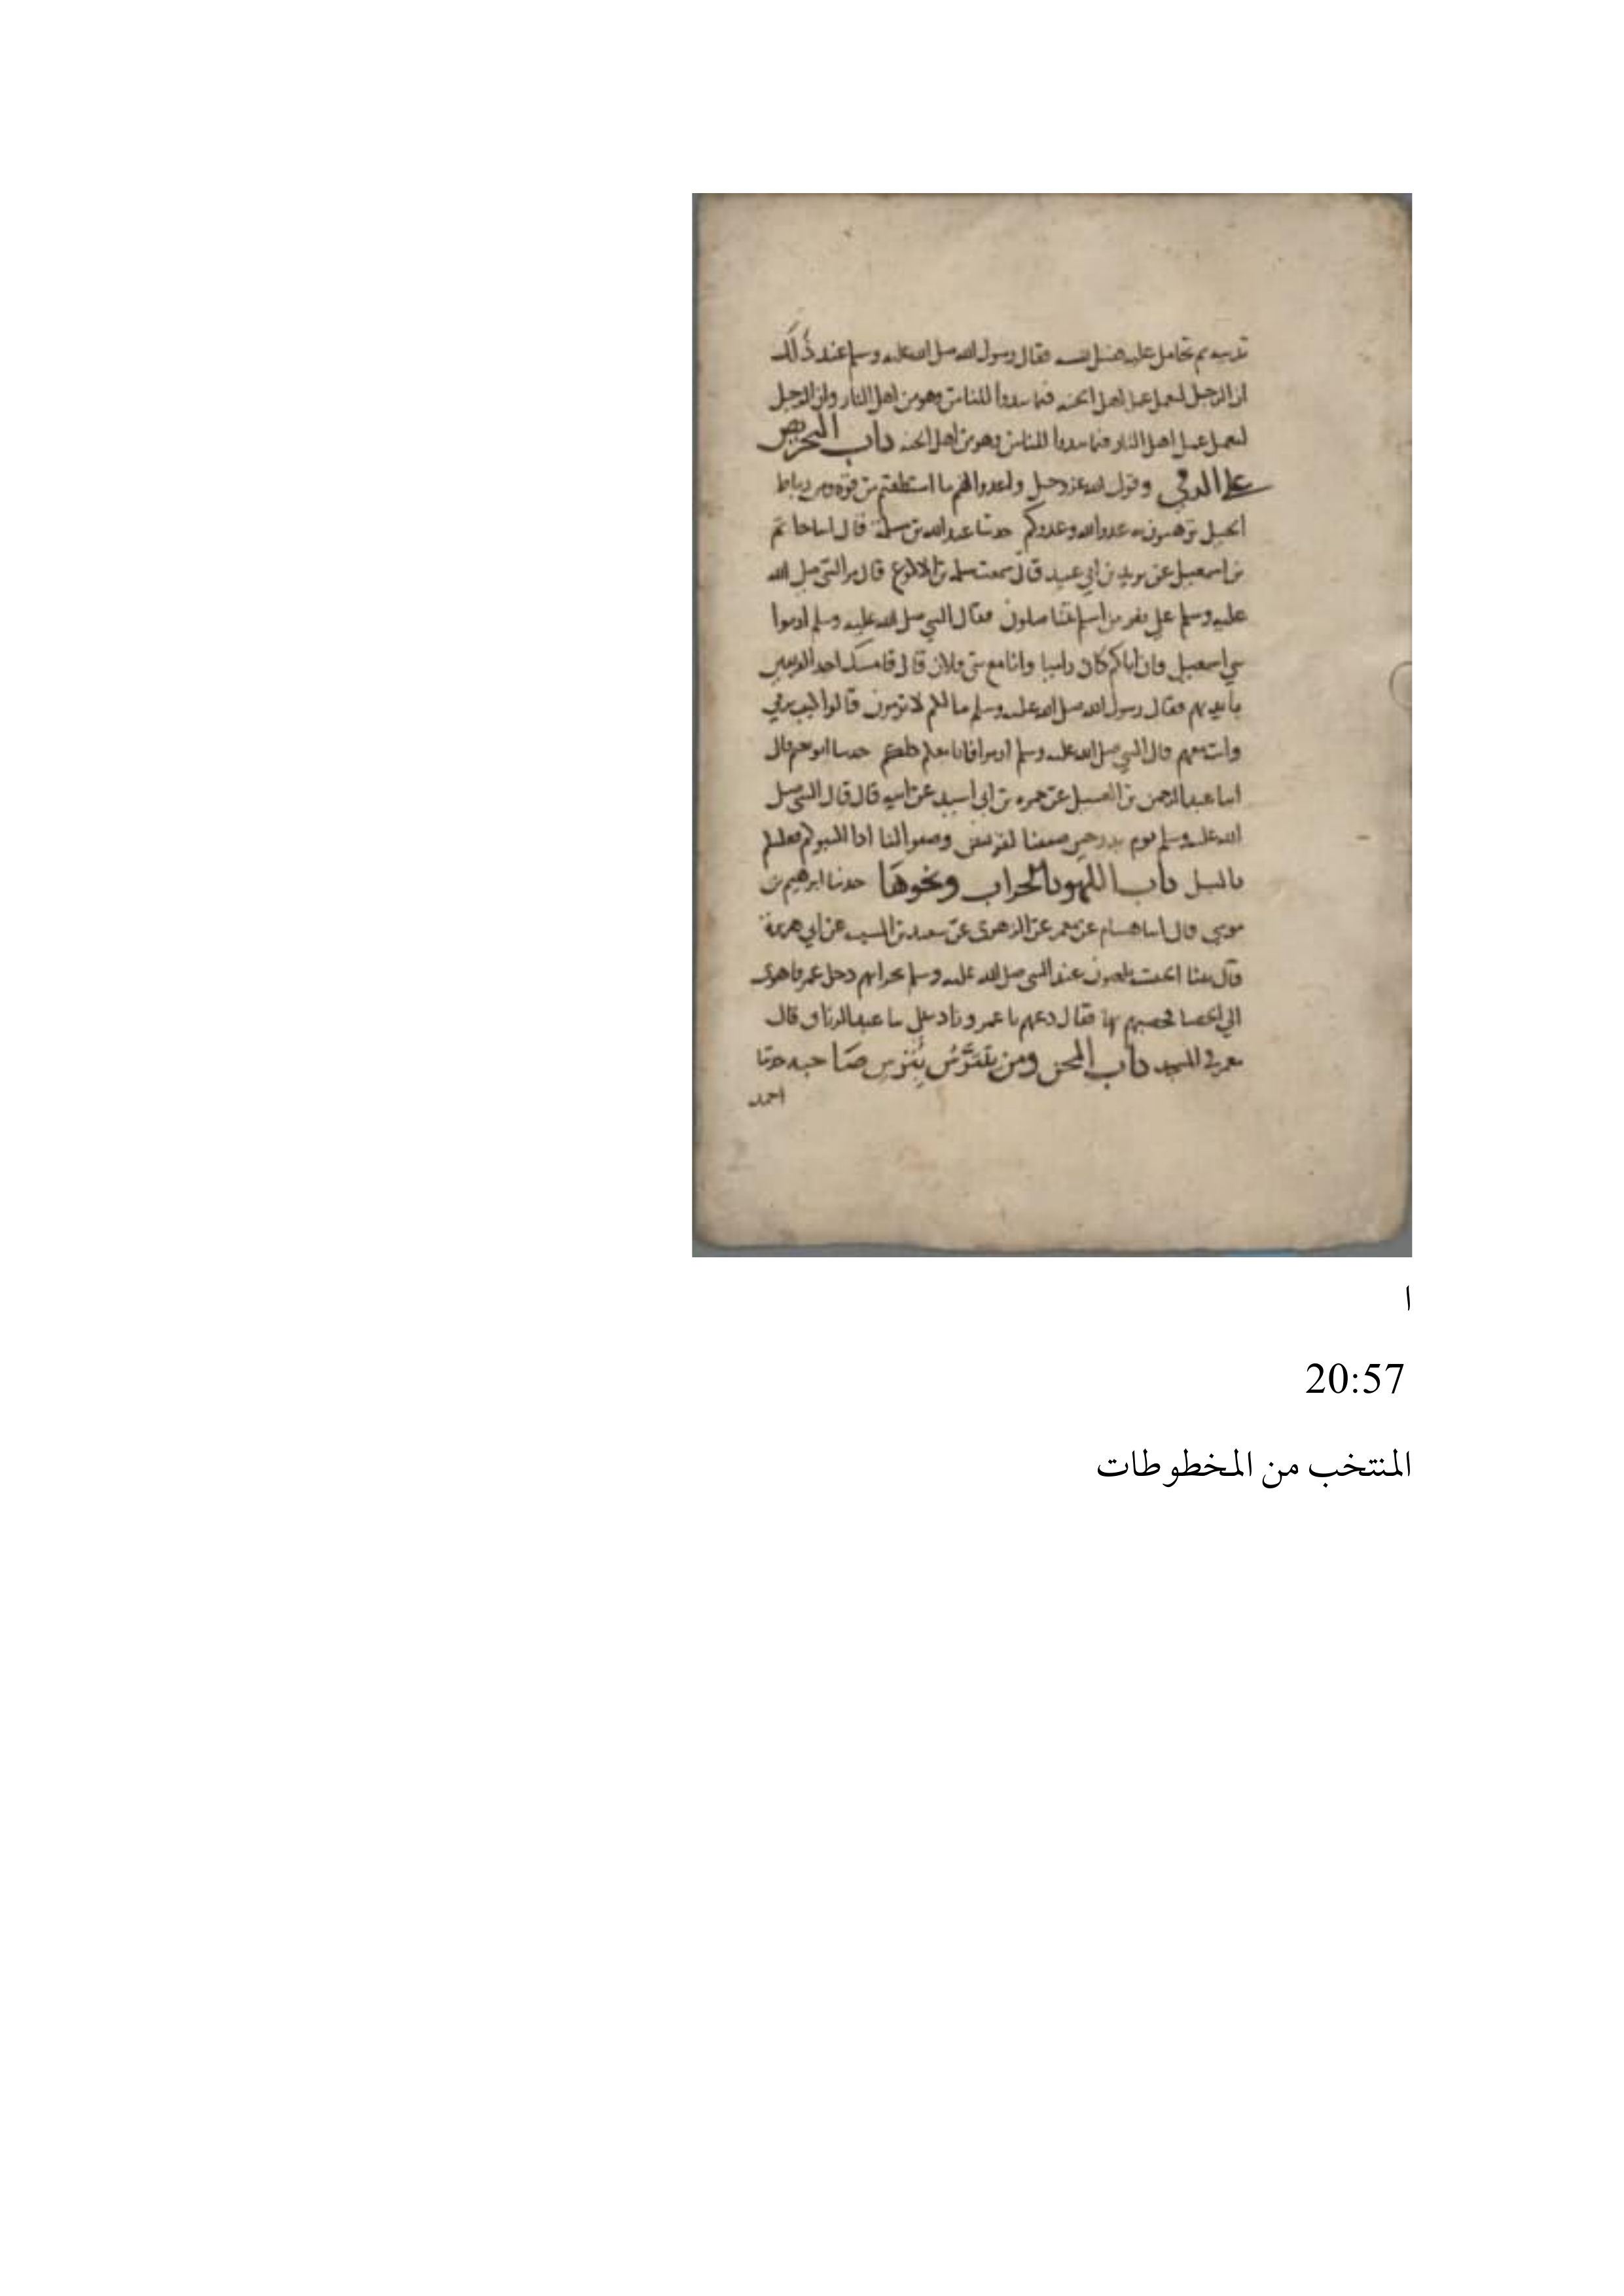 ثدييه ثم تحامل عليه فقتل نفسه فقال رسول الله صلى الله عليه وسلم عند ذلك
ان الرجل ليعمل عمل اهل الجنه فيما يبدوا للناس وهو من اهل النار وان الرجل
ليعمل عمل اهل النار فيما يبدوا للناس وهو من اهل الجنه باب التحريض
على الرمي وقول الله عز وجل واعدوا لهم ما استطعتم من قوة ومن رباط
الخيل ترهبون به عدو الله وعدوكم حدثنا عبد الله بن مسلمة قال حاتم
بن اسمعيل عن يزيد بن ابي عبيد قال سمعت سلمه بن الاكوع قال مر النبي صلى الله
عليه وسلم على نفر من اسلم ينتضلون فقال النبي صلى الله عليه وسلم ارموا
بني اسمعيل فان اباكم كان راميا وانا مع بني فلان قال فامسك احد الفريقين
بأيديهم فقال رسول الله صلى الله عليه وسلم ما لكم لا ترمون قالوا كيف نرمي
وانت معهم قال النبي صلى الله عليه وسلم ارموا فانا معكم كلكم حدثنا ابو نعيم قال
عبد الرحمن بن الغسيل عن حمزه بن ابي اسيد عن ابيه قال قال النبي صلى
الله عليه وسلم يوم بدر حين صففنا لقريش وصفوا لنا اذا اكثبوكم فعليكم
بالنبل باب اللهو بالحراب ونحوها حدثنا ابرهيم بن
موسى قال هشام عن معمر عن الزهرى عن سعيد بن المسيب عن ابي هريرة
قال بينا الحبشه يلعبون عند النبي صلى الله عليه وسلم بحرابهم دخل عمر فاهوى
الى الحصا فحصبهم بها فقال دعهم يا عمر وزاد علي عبد الرزاق قال
معمر في المسجد باب المجن ومن يتترس بترس صاحبه حدثنا
احمد
ا
20:57
المنتخب من المخطوطات